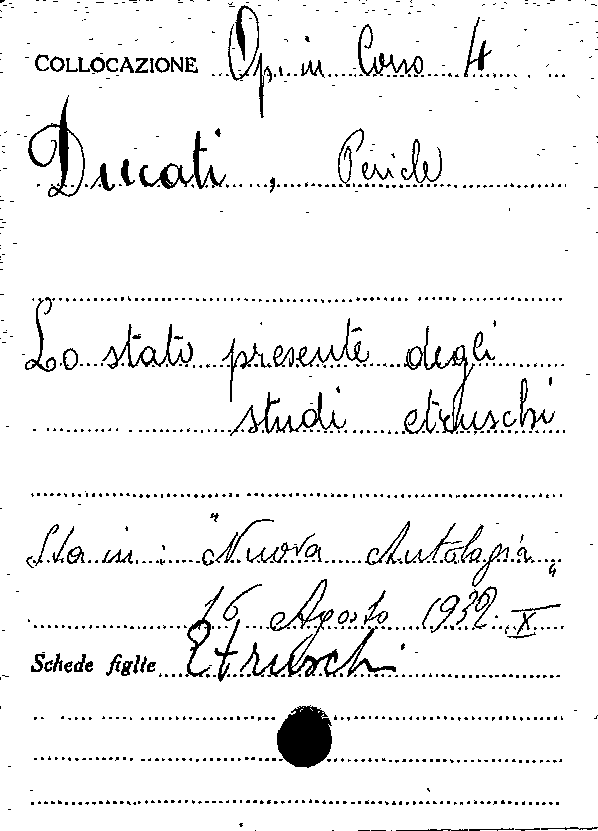 COLLOCAZIONE Op. in Corso 4
Ducati, Pericle
Lo stato presente degli
studi etruschi
Sta in: "Nuova Antologia"
16 Agosto 1932. X
Schede figlie Etruschi